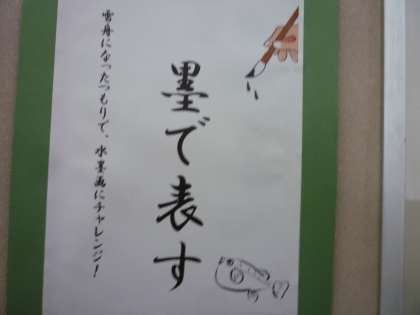 墨で表す
雪舟になったつもりで、水墨画にチャレンジ!